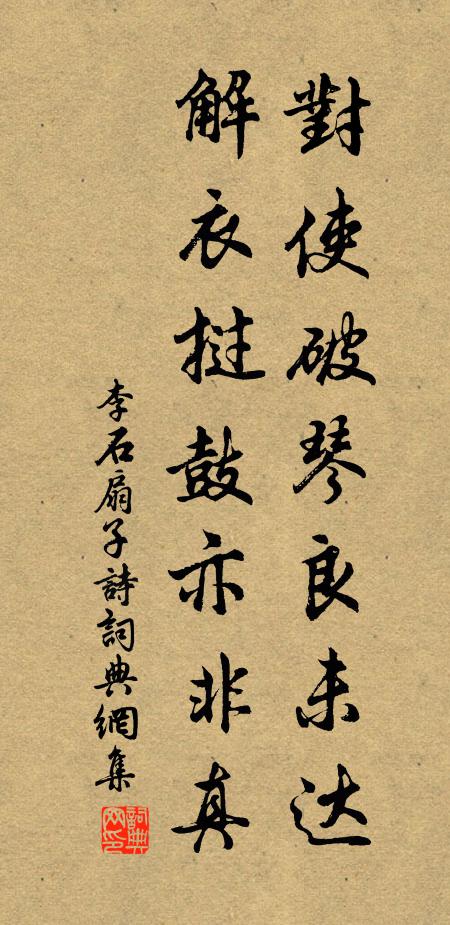 對使破琴良未达
解衣挝鼓亦非真
李石扇子詩詞典網集
詞典网印